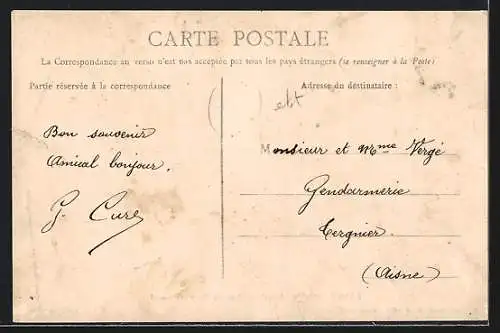 CARTE POSTALE
La Correspondance au verso n'est pas acceptée par tous les pays étrangers (se renseigner à la Poste)
Partie réservée à la correspondance
Adresse du destinataire :
Bon souvenir
Amical bonjour.
Monsieur et Mme Vergé
Gendarmerie
Tergnier.
(Aisne)